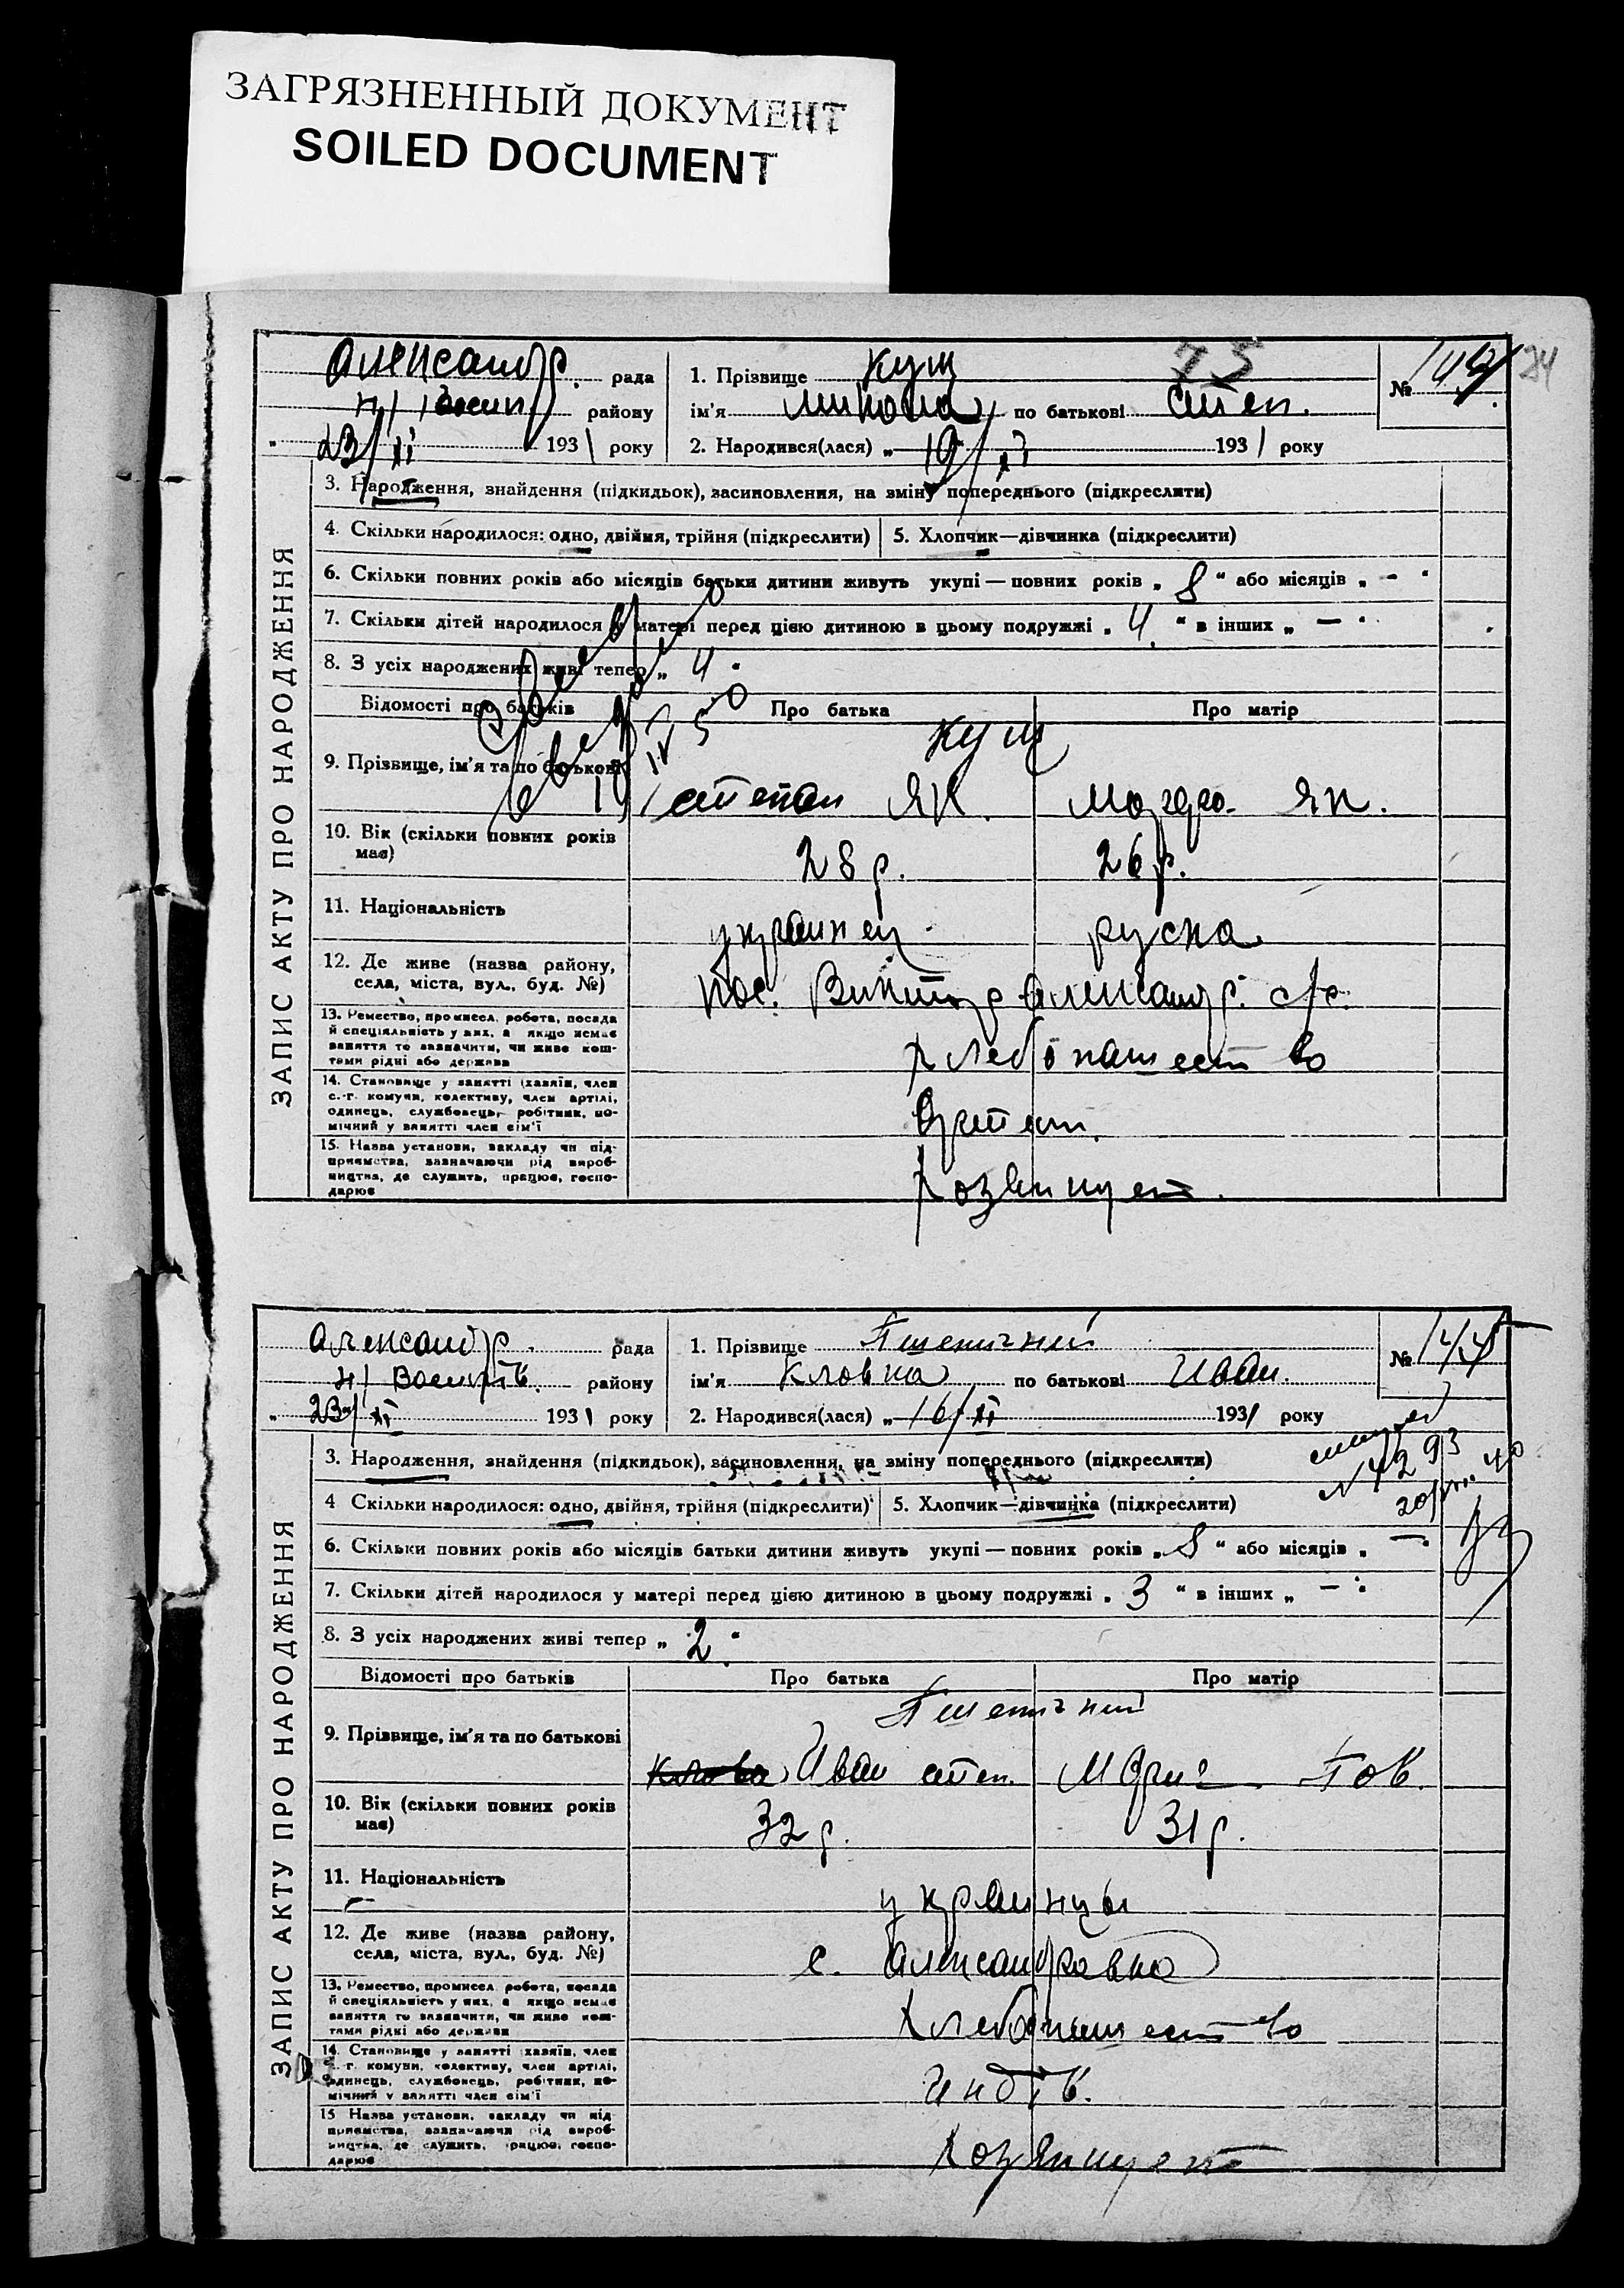 ЗАГРЯЗНЕННЫЙ ДОКУМЕНТ
SOILED DOCUMENT
ЗАПИС АКТУ ПРО НАРОДЖЕННЯ
Александр. рада
району
23/XI 1931 року
1. Прізвище Кущ
75
ім'я Микола по батькові Степ.
2. Народився(лася) „ 19/XI 1931 року
№ 144
3. Народження, знайдення (підкидьок), засиновлення, на зміну попереднього (підкреслити)
4. Скільки народилося: одно, двійня, трійня (підкреслити)
5. Хлопчик—дівчинка (підкреслити)
6. Скільки повних років або місяців батьки дитини живуть укупі — повних років „ 8 “ або місяців „ - “
7. Скільки дітей народилося у матері перед цією дитиною в цьому подружжі „ 4 “ в інших „ — “
8. З усіх народжених живі тепер „ 4 “
Відомості про батьків Про батька Про матір
Кущ
9. Прізвище, ім'я та по батькові
Степан Як. Як.
10. Вік (скільки повних років має)
28 р. 26 р.
11. Національність
украинец руска
12. Де живе (назва району, села, міста, вул., буд. №)
пос. Александр. с/с.
13. Ремество, промисел, робота, посада й спеціяльність у них, а якщо немає заняття то зазначити, чи живе коштами рідні або держави
хлебопашество
14. Становище у занятті (хазяїн, член с.-г. комуни, колективу, член артілі, одинець, службовець, робітник, помічний у занятті член сім'ї
15. Назва установи, закладу чи підприємства, зазначаючи рід виробництва, де служить, працює, господарює
ЗАПИС АКТУ ПРО НАРОДЖЕННЯ
Александр. рада
району
23/XI 1931 року
1. Прізвище Пшеничний
ім'я Клавка по батькові Иван.
2. Народився(лася) „ 16/XI 1931 року
№ 145
3. Народження, знайдення (підкидьок), засиновлення, на зміну попереднього (підкреслити)
4 Скільки народилося: одно, двійня, трійня (підкреслити)
5. Хлопчик—дівчинка (підкреслити)
6. Скільки повних років або місяців батьки дитини живуть укупі — повних років „ 8 “ або місяців „ — “
7. Скільки дітей народилося у матері перед цією дитиною в цьому подружжі „ 3 “ в інших „ — “
8. З усіх народжених живі тепер „ 2 “
Відомості про батьків Про батька Про матір
Пшеничний
9. Прізвище, ім'я та по батькові
Иван Степ.
10. Вік (скільки повних років має)
32 р. 31 р.
11. Національність
украинцы
12. Де живе (назва району, села, міста, вул., буд. №)
с. Александровка
13. Ремество, промисел, робота, посада й спеціяльність у них, а якщо немає заняття то зазначити, чи живе коштами рідні або держави
хлебопашество
14. Становище у занятті (хазяїн, член с.-г. комуни, колективу, член артілі, одинець, службовець, робітник, помічний у занятті член сім'ї
15 Назва установи, закладу чи підприємства, зазначаючи рід виробництва, де служить, працює, господарює